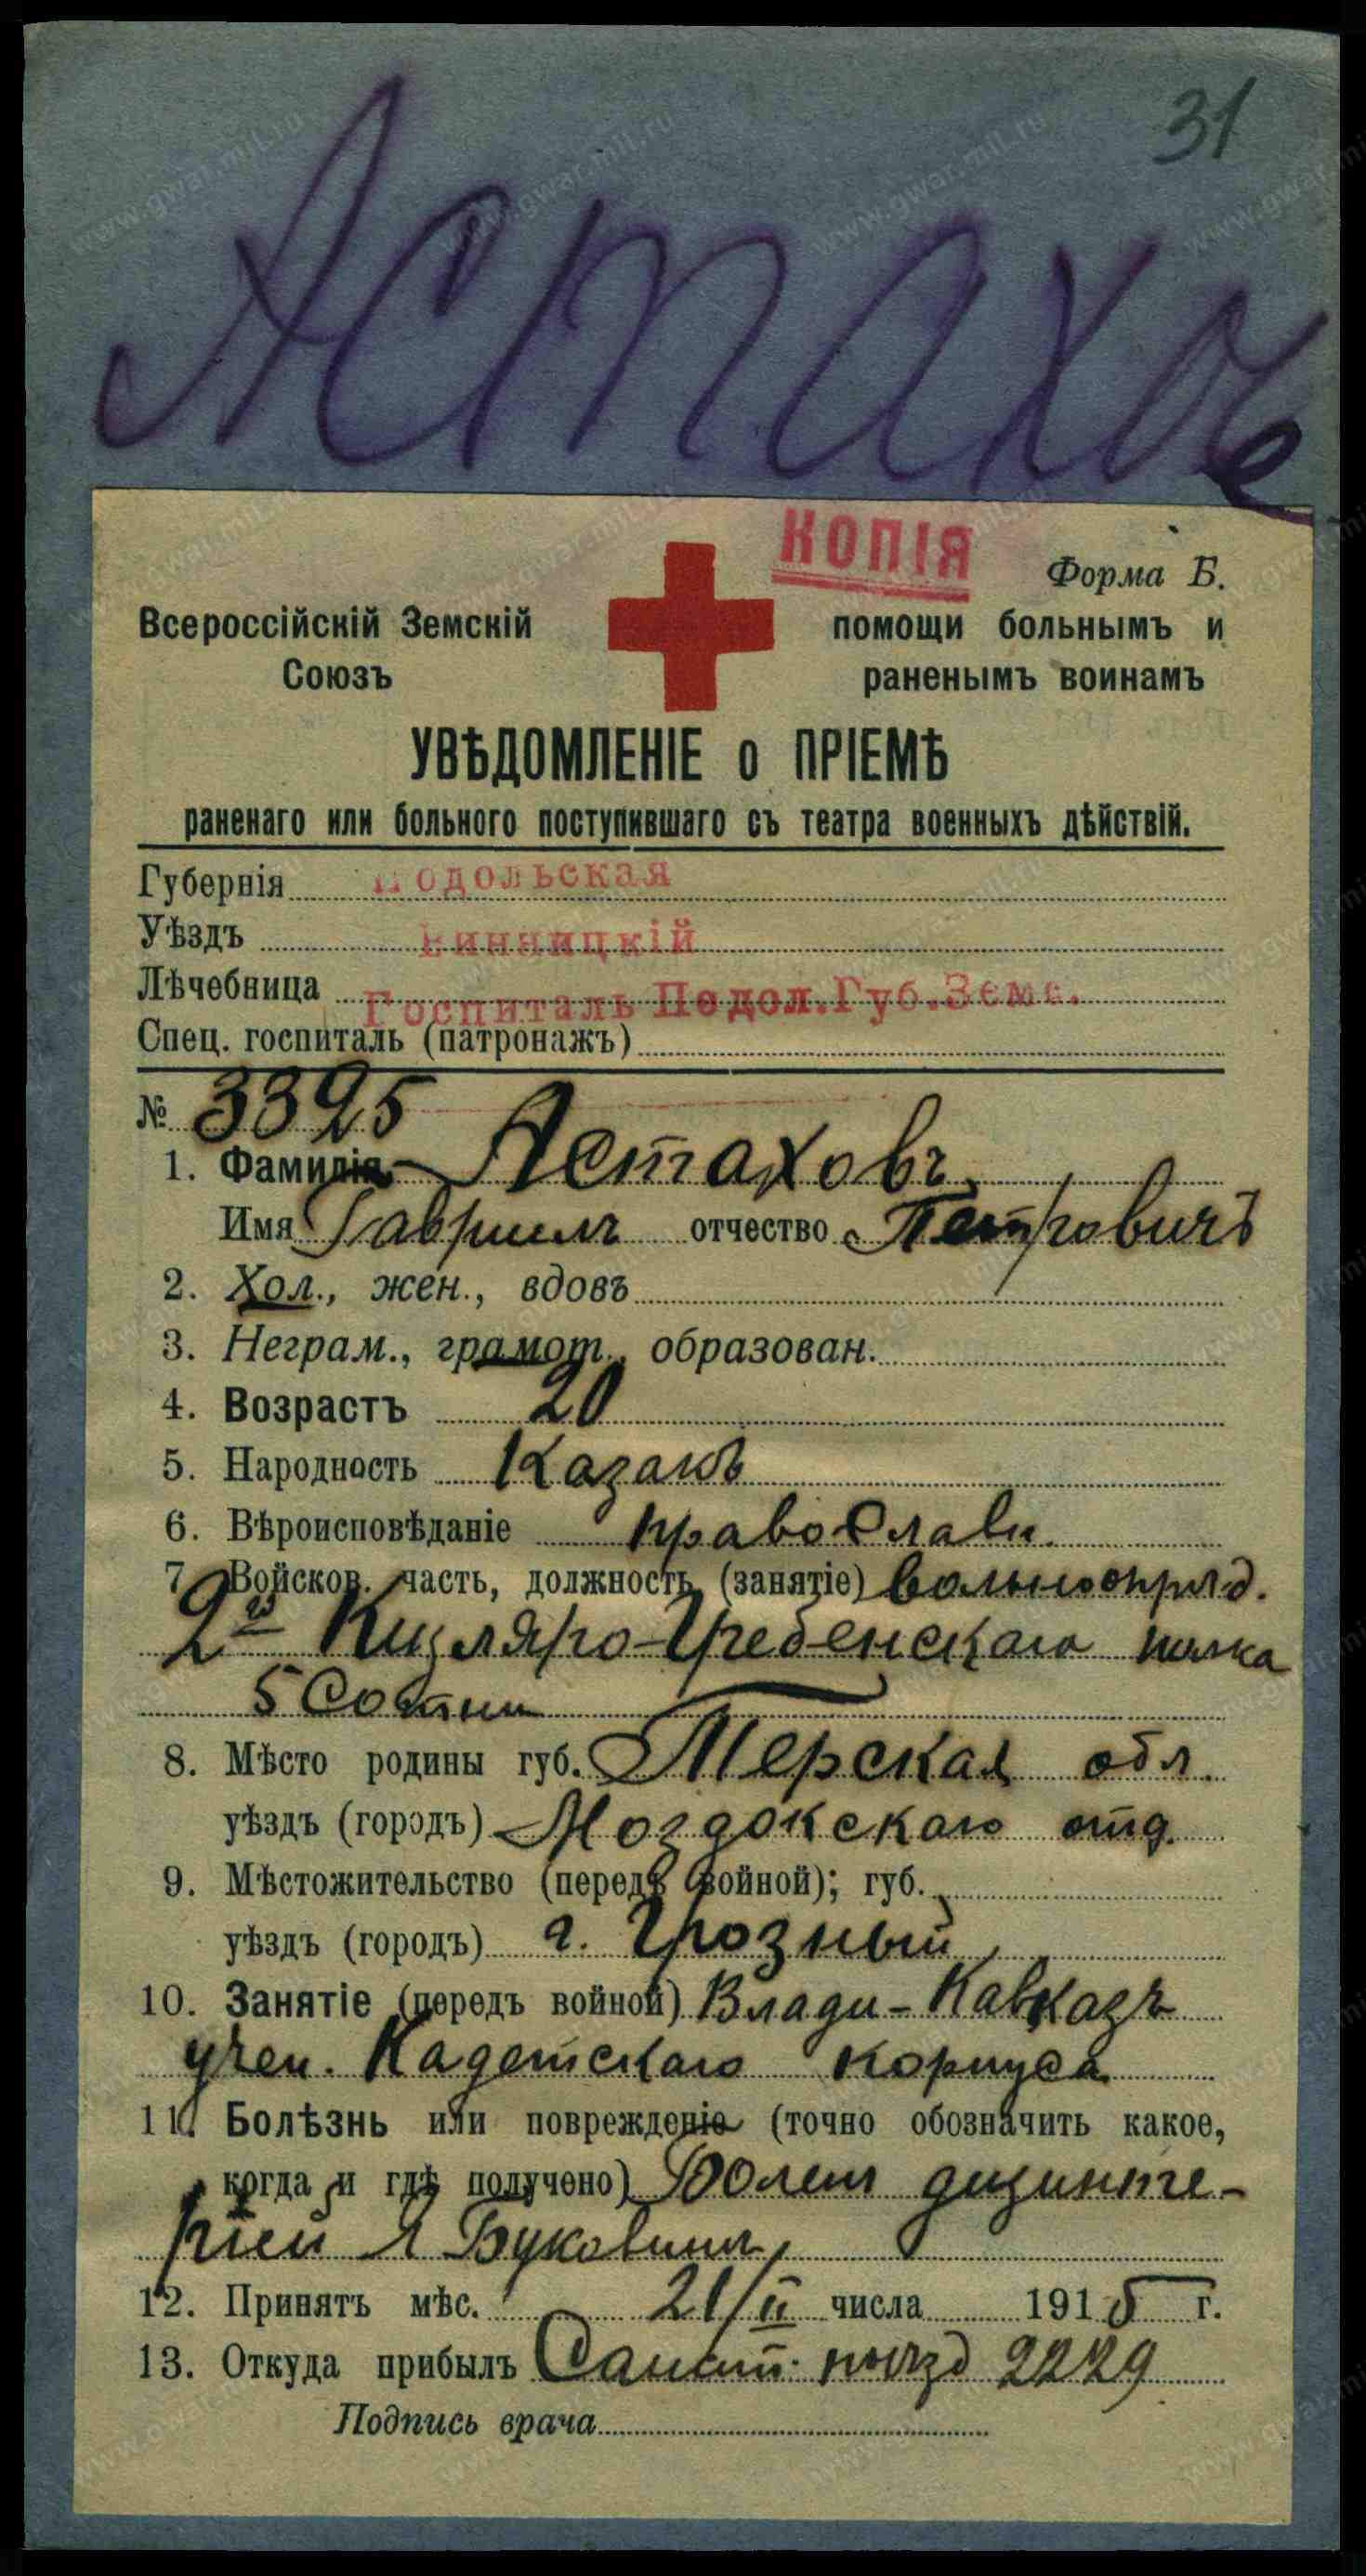 31
Астахов
КОПІЯ
Форма Б.
Всероссійскій Земскій
Союзъ
помощи больнымъ и
раненымъ воинамъ
УВѢДОМЛЕНІЕ о ПРІЕМѢ
раненаго или больного поступившаго съ театра военныхъ дѣйствій.
Губернія Подольская
Уѣздъ Винницкій
Лѣчебница Госпиталь Подол.Губ.Земс.
Спец. госпиталь (патронажъ)
№ 3325
1. Фамилія Астаховъ
Имя Гавриилъ отчество Петровичъ
2. Хол., жен., вдовъ
3. Неграм., грамот., образован.
4. Возрастъ 20
5. Народность Казакъ
6. Вѣроисповѣданіе православн.
7. Войсков. часть, должность (занятіе) вольноопрѣд.
2й Кизляро-Гребенскаго полка
5 Сотни
8. Мѣсто родины губ. Терская обл.
уѣздъ (городъ) Моздокскаго отд.
9. Мѣстожительство (передъ войной); губ.
уѣздъ (городъ) г. Грозный
10. Занятіе (передъ войной) Влади-Кавказъ
учен. Кадетскаго корпуса
11. Болѣзнь или поврежденіе (точно обозначить какое,
когда и гдѣ получено) Болен дизинте-
ріей Буковина
12. Принятъ мѣс. 21/II числа 1915 г.
13. Откуда прибылъ Санит. поѣзд 2229
Подпись врача
www.gwar.mil.ru